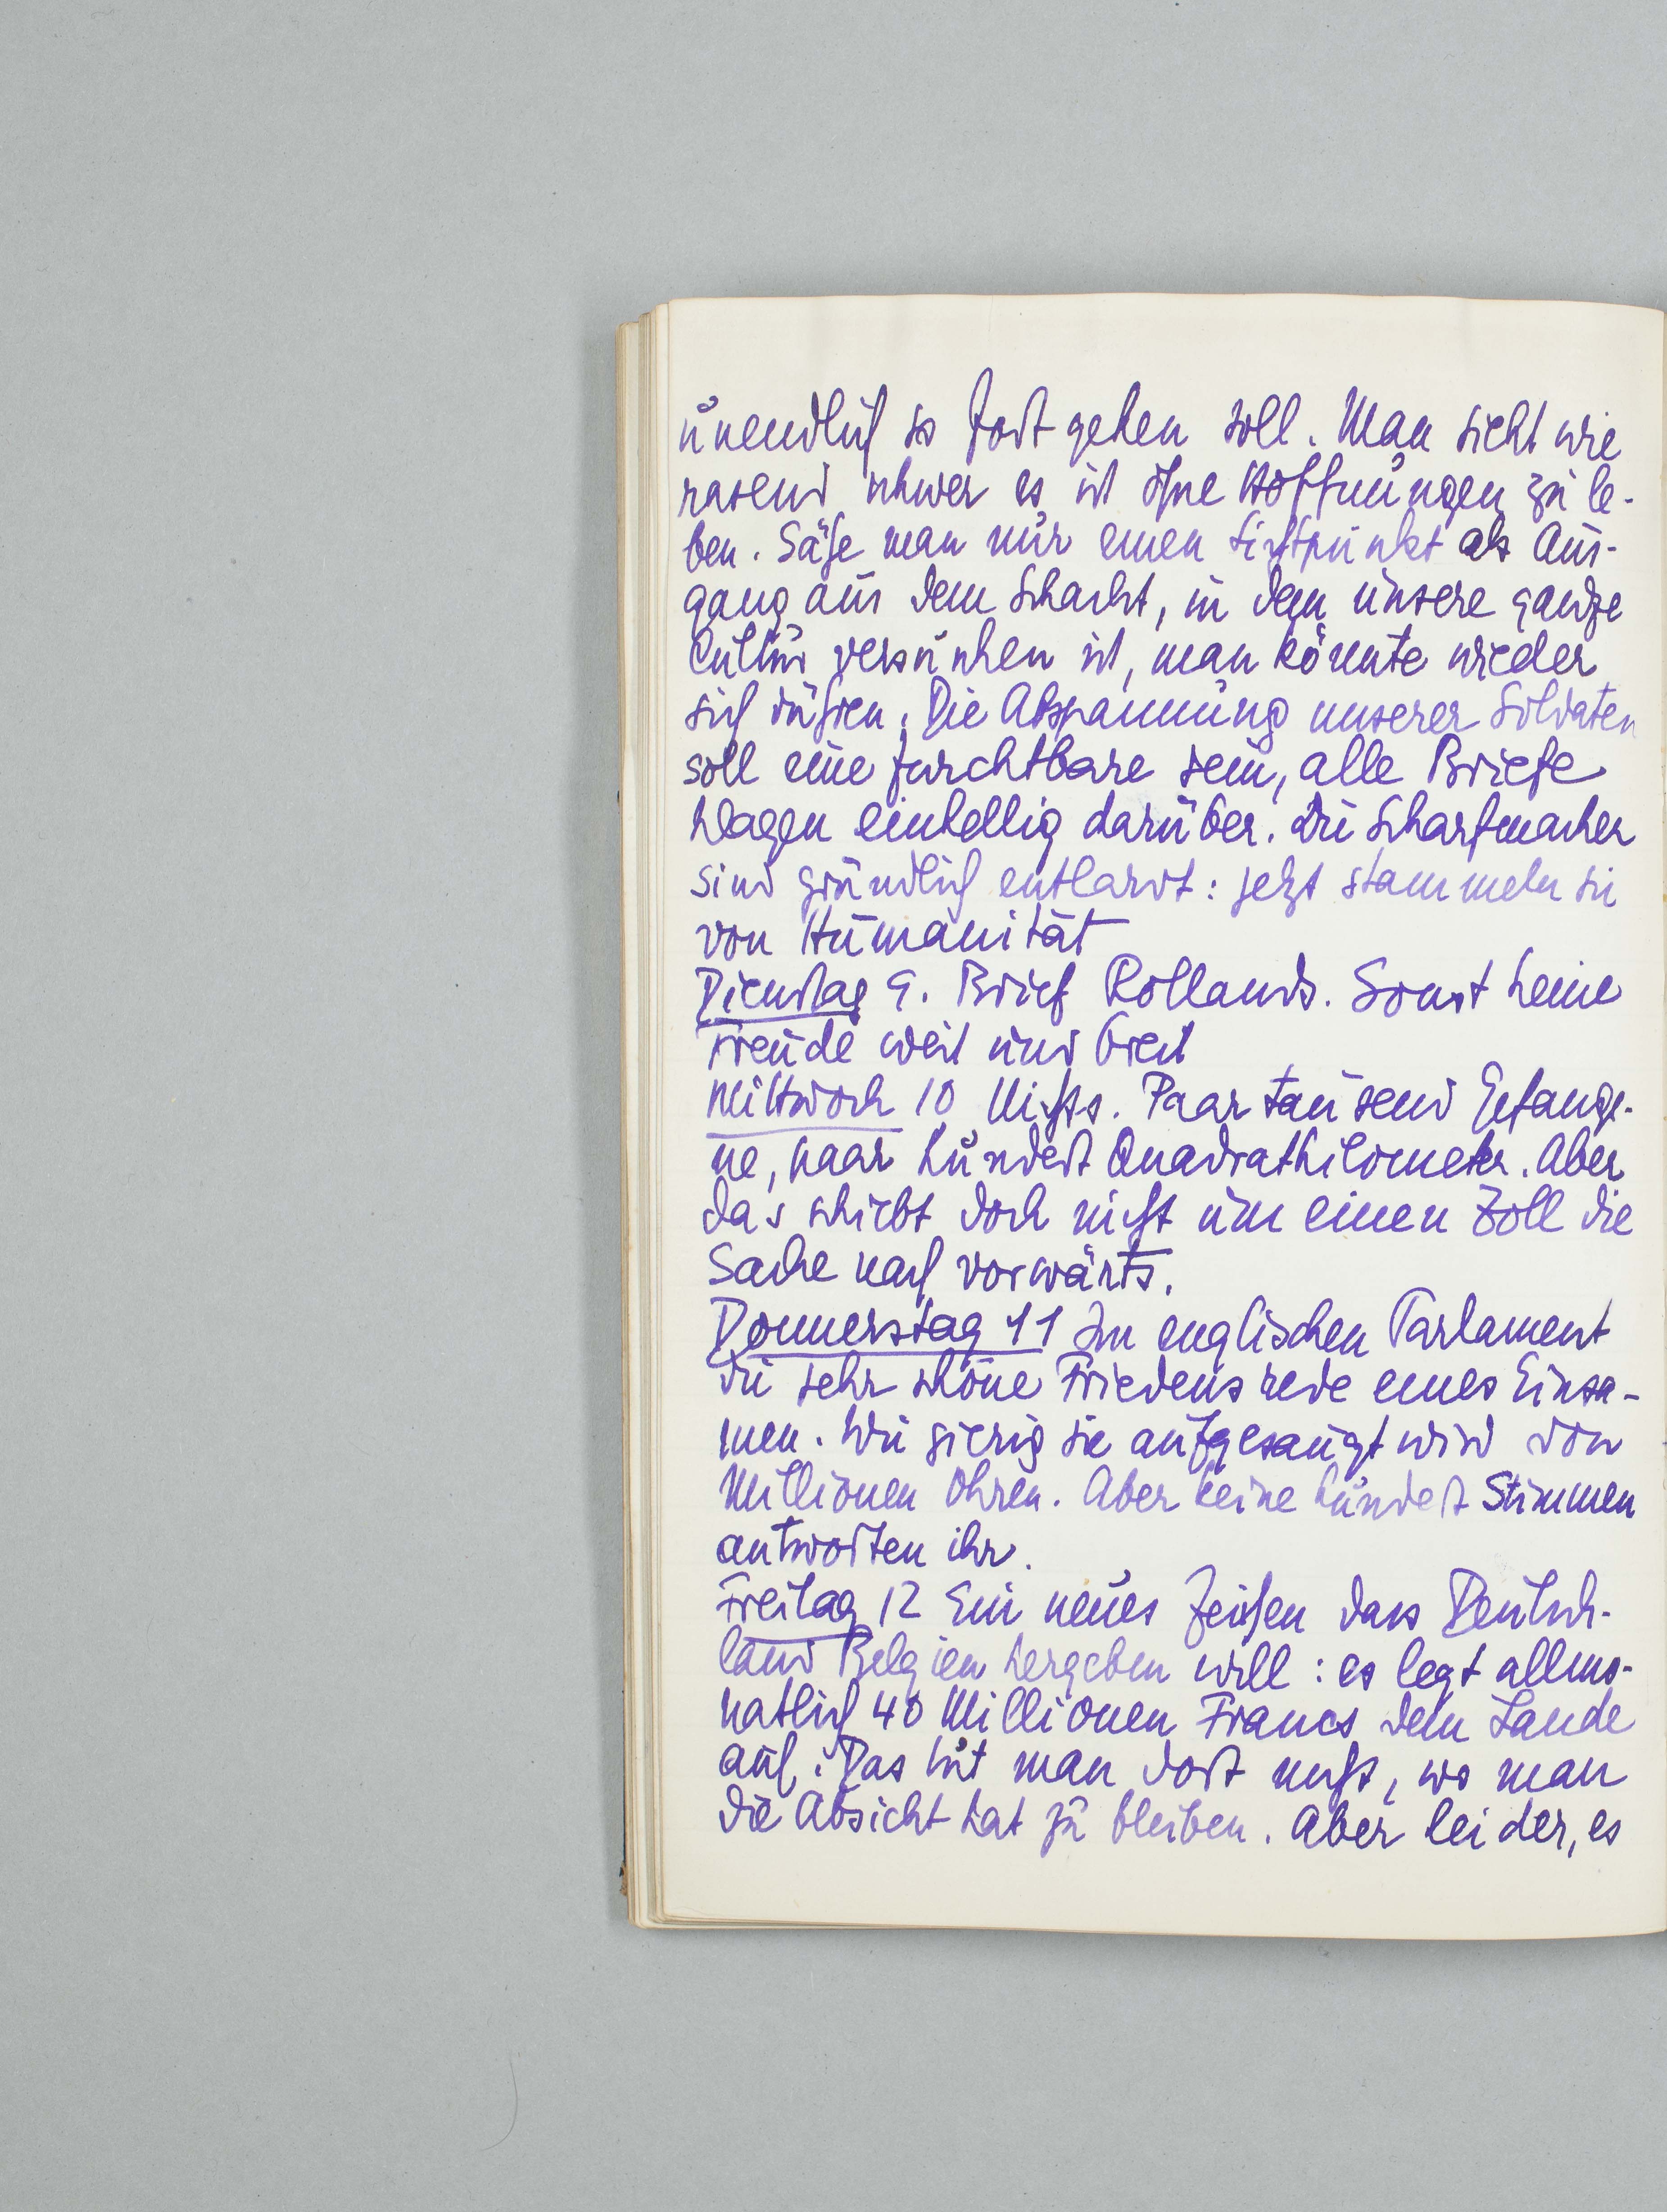 unendlich so fort gehen soll. Man sieht wie
rasend schwer es ist ohne Hoffnungen zu le-
ben. Sähe man nur einen Lichtpunkt als Aus-
gang aus dem Schacht, in dem unsere ganze
Cultur versunken ist, man könnte wieder
sich rühren. Die Abspannung unserer Soldaten
soll eine furchtbare sein, alle Briefe
klagen einhellig darüber. Die Scharfmacher
sind gründlich entlarvt: jetzt stammeln sie
von Humanität
Dienstag 9. Brief Rollands. Sonst keine
Freude weit und breit
Mittwoch 10 Nichts. Paar tausend Gefange-
ne, paar hundert Quadratkilometer. Aber
das schiebt doch nicht um einen Zoll die
Sache nach vorwärts.
Donnerstag 11 Im englischen Parlament
die sehr schöne Friedensrede eines Einsa-
men. Wie gierig sie aufgesaugt wird von
Millionen Ohren. Aber keine hundert Stimmen
antworten ihr.
Freitag 12 Ein neues Zeichen dass Deutsch-
land Belgien hergeben will: es legt allmo-
natlich 40 Millionen Francs dem Lande
auf. Das tut man dort nicht, wo man
die Absicht hat zu bleiben. Aber leider, es